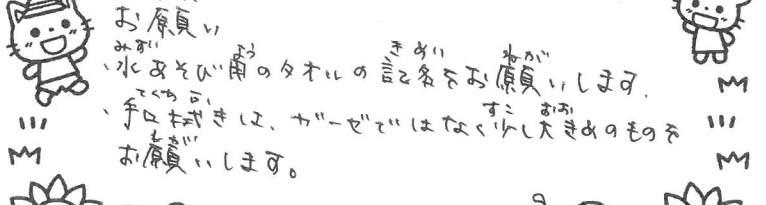 お願い
・水あそび用のタオルの記名をお願いします。
・手口拭きは、ガーゼではなく少し大きめのものを
お願いします。